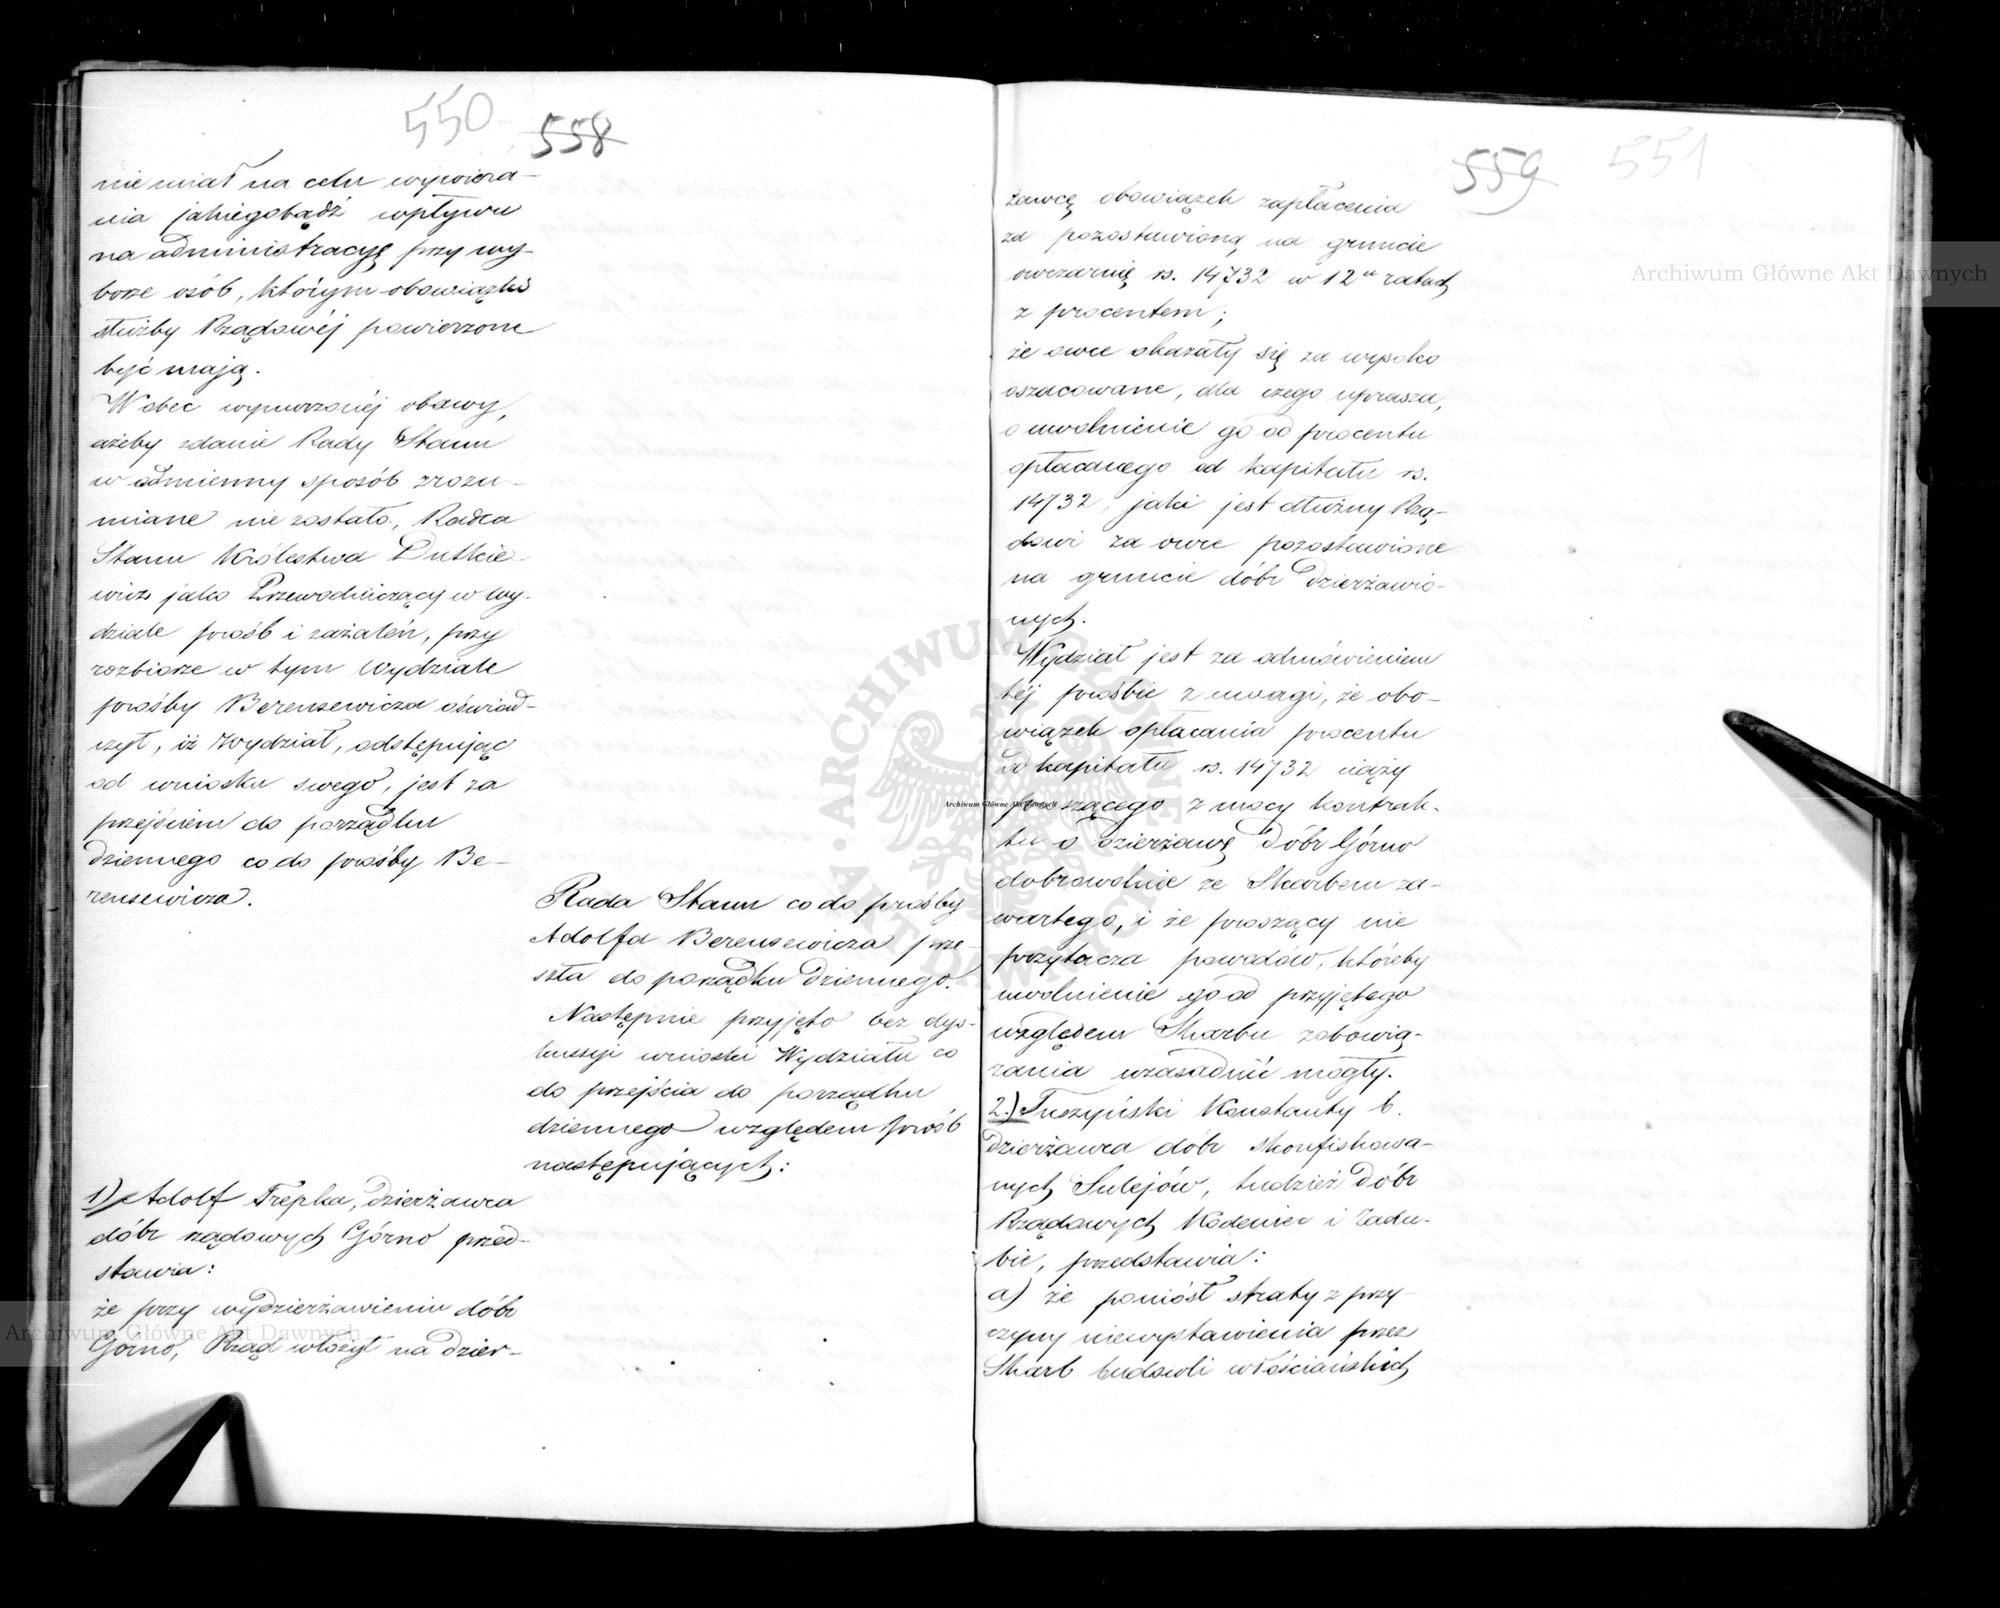 550 558
nie miał na celu wywiera-
nia jakiegobądź wpływu
na administracyę przy wy-
borze osób, którym obowiązki
służby Rządowéj powierzone
być mają.
Wobec wynurzonéj obawy,
ażeby zdanie Rady Stanu
w odmienny sposób zrozu-
miane nie zostało, Radca
Stanu Królestwa Dutkie-
wicz jako Przewodniczący w Wy-
dziale próśb i zażaleń, przy
rozbiorze w tym Wydziale
prośby Berensewicza oświad-
czył, iż Wydział, odstępując
od wniosku swego, jest za
przejściem do porządku
dziennego co do prośby Be-
rensewicza.
Rada Stanu co do prośby
Adolfa Berensewicza prze-
szła do porządku dziennego.
Następnie przyjęto bez dys-
kussyi wnioski Wydziału co
do przejścia do porządku
dziennego względem próśb
następujących:
1) Adolf Trepka, dzierżawca
dóbr rządowych Górno przed-
stawia:
że przy wydzierżawieniu dóbr
Górno, Rząd włożył na dzier-
559 551
żawcę obowiązek zapłacenia
za pozostawioną na gruncie
owczarnię rs. 14732 w 12u ratach
z procentem;
że owce okazały się za wysoko
oszacowane, dla czego uprasza,
o uwolnienie go od procentu
opłacanego od kapitału rs.
14732, jaki jest dłużny Rzą-
dowi za owce pozostawione
na gruncie dóbr dzierżawio-
nych.
Wydział jest za odmówieniem
téj prośbie z uwagi, że obo-
wiązek opłacania procentu
od kapitału rs. 14732 ciąży
proszącego z mocy kontrak-
tu o dzierżawę dóbr Górno
dobrowolnie ze Skarbem za-
wartego, i że proszący nie
przytacza powodów, któreby
uwolnienie go od przyjętego
względem Skarbu zobowią-
zania uzasadnić mogły.
2.) Tuszyński Konstanty b.
dzierżawca dóbr skonfiskowa-
nych Sulejów, tudzież dóbr
Rządowych Kodeniec i Zadu-
bie, przedstawia:
a) że poniósł straty z przy-
czyny niewystawienia przez
Skarb budowli włościańskich
Archiwum Główne Akt Dawnych
Archiwum Główne Akt Dawnych
Archiwum Główne Akt Dawnych